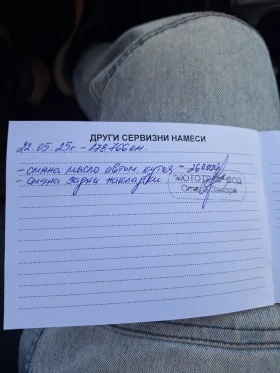 ДРУГИ СЕРВИЗНИ НАМЕСИ
22.05.25г. - 178 766 км.
- смяна масло автом. кутия -
- смяна задни накладки
Стара Загора